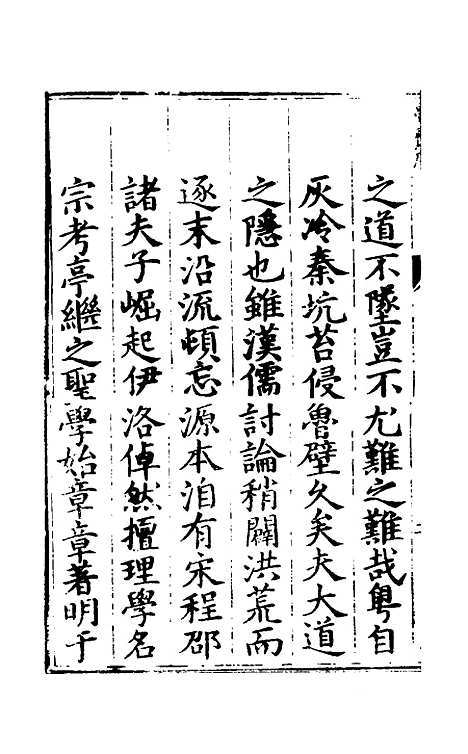 之道不墜豈不尤難之難哉粤自
灰冷秦坑苔侵魯壁久矣夫大道
之隱也雖漢儒討論稍闢洪荒而
逐末沿流頓忘源本洎有宋程邵
諸夫子崛起伊洛倬然擅理學名
宗考亭繼之聖學始章章著明于